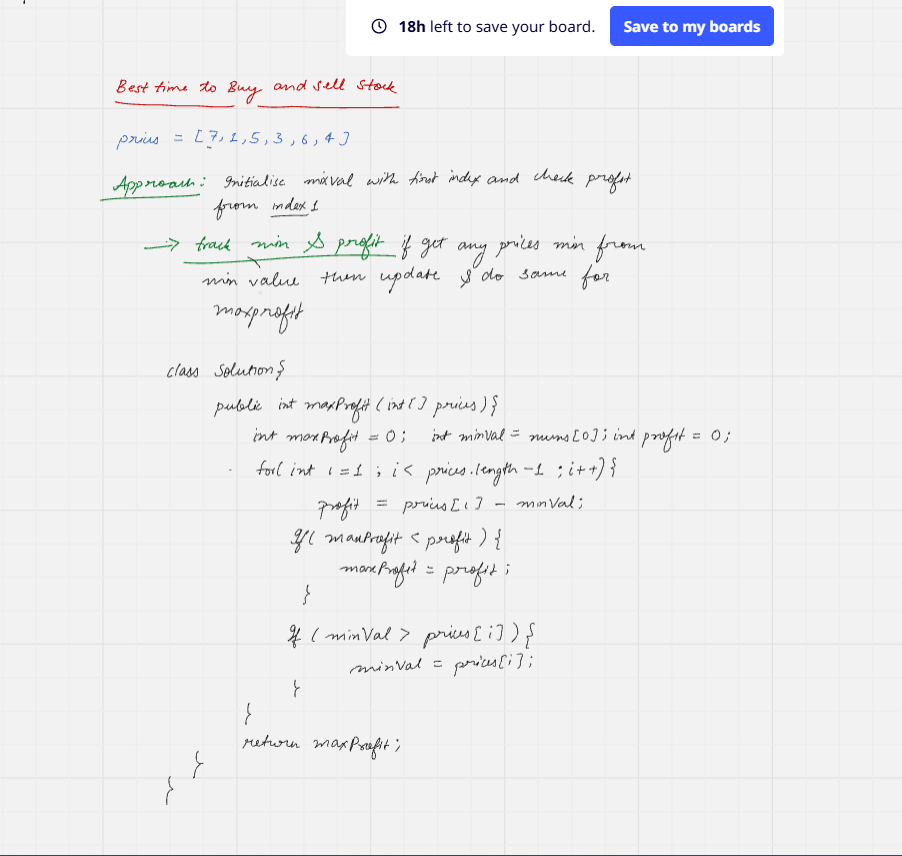 18h left to save your board. Save to my boards
Best time to Buy and Sell Stock
prices = [7,1,5,3,6,4]
Approach: Initialise minval with first index and check profit
from index 1
→ track min & profit if get any prices min from
min value then update & do same for
maxprofit
class Solution{
public int maxProfit (int[] prices){
int maxProfit = 0; int minVal = nums[0]; int profit = 0;
for( int i=1 ; i< prices.length -1 ; i++){
profit = prices[i] - minVal;
if( maxProfit < profit ) {
maxProfit = profit ;
}
if (minVal > prices[i]){
minVal = prices[i];
}
}
return maxProfit;
}
}